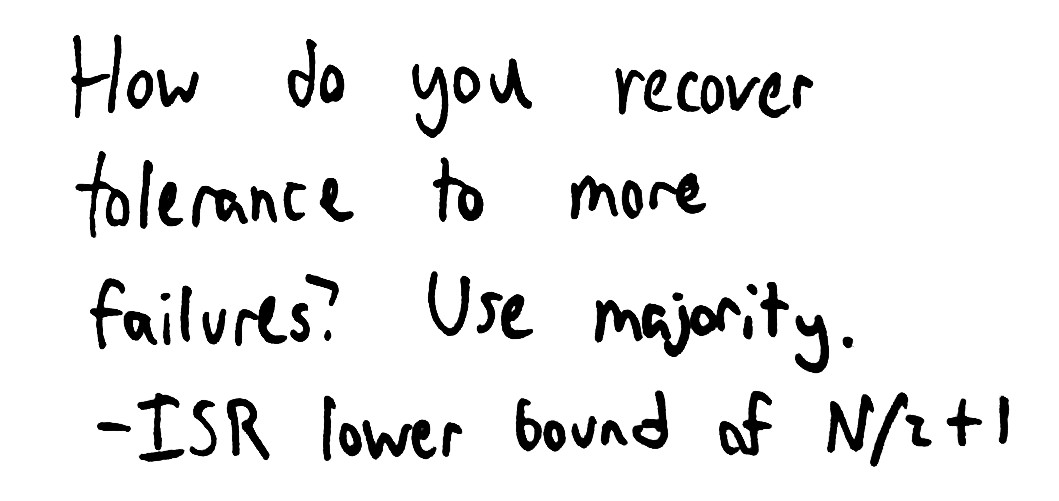 How do you recover
tolerance to more
failures? Use majority.
-ISR lower bound of N/2+1